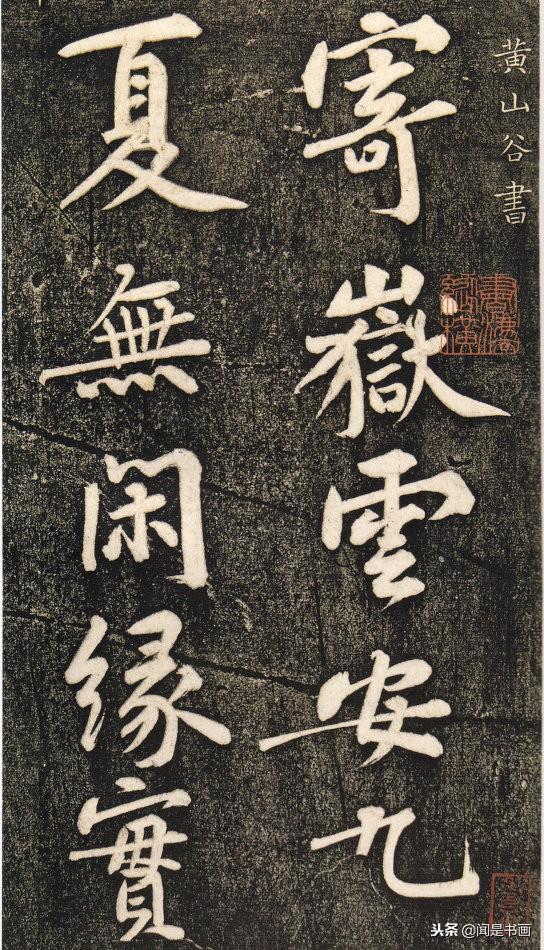 黄山谷書
寄嶽雲安九
夏無閑緣實
头条 @闻是书画